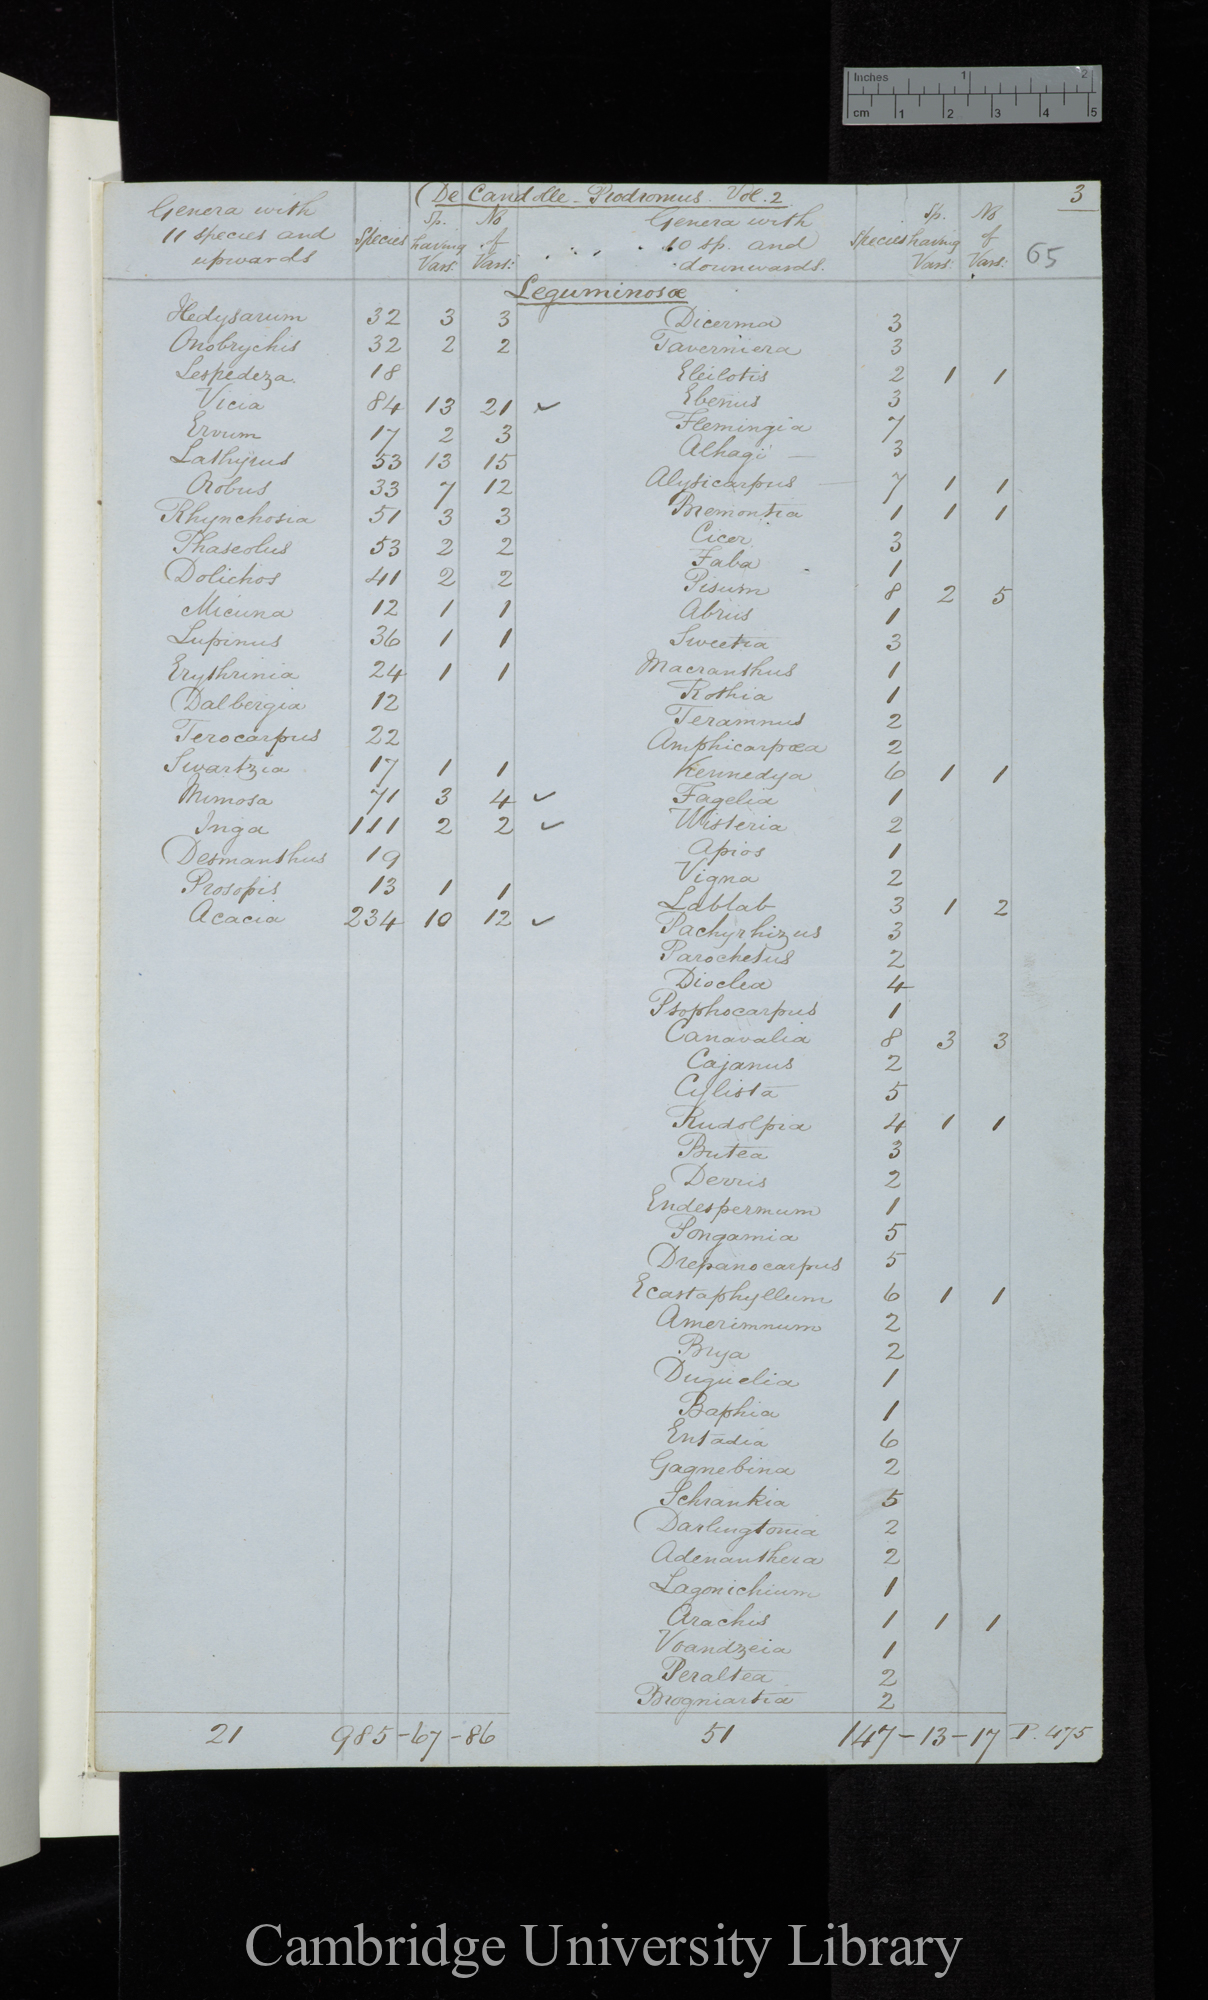 Inches 1 2
cm 1 2 3 4 5
(De Candolle - Prodromus. Vol. 2 3
Genera with 11 species and upwards Species Sp. having Vars: No of Vars: Genera with 10 sp. and downwards. Species Sp. having Vars: No of Vars: 65
Leguminosæ
Hedysarum 32 3 3
Onobrychis 32 2 2
Lespedeza. 18
Vicia 84 13 21 ✓
Ervum 17 2 3
Lathyrus 53 13 15
Orobus 33 7 12
Rhynchosia 51 3 3
Phaseolus 53 2 2
Dolichos 41 2 2
Micuna 12 1 1
Lupinus 36 1 1
Erythrinia 24 1 1
Dalbergia 12
Terocarpus 22
Swartzia 17 1 1
Mimosa 71 3 4 ✓
Inga 111 2 2 ✓
Desmanthus 19
Prosopis 13 1 1
Acacia 234 10 12 ✓
21 985-67-86
Dicerma 3
Taverniera 3
Eleilotis 2 1 1
Ebenus 3
Flemingia 7
Alhagi — 3
Alysicarpus — 7 1 1
Bremontia 1 1 1
Cicer 3
Faba 1
Pisum 8 2 5
Abrus 1
Sweetia 3
Macranthus 1
Rothia 1
Teramnus 2
Amphicarpæa 2
Kennedya 6 1 1
Fagelia 1
Wisteria 2
Apios 1
Vigna 2
Lablab 3 1 2
Pachyrhizus 3
Parochetus 2
Dioclea 4
Psophocarpus 1
Canavalia 8 3 3
Cajanus 2
Cylista 5
Rudolpia 4 1 1
Butea 3
Derris 2
Endespermum 1
Pongamia 5
Drepanocarpus 5
Ecastaphyllum 6 1 1
Amerimnum 2
Brya 2
Duguelia 1
Baphia 1
Entadia 6
Gagnebina 2
Schrankia 5
Darlingtonia 2
Adenanthera 2
Lagonichium 1
Arachis 1 1 1
Voandzeia 1
Peraltea 2
Brogniartia 2
51 147-13-17 P. 475
Cambridge University Library